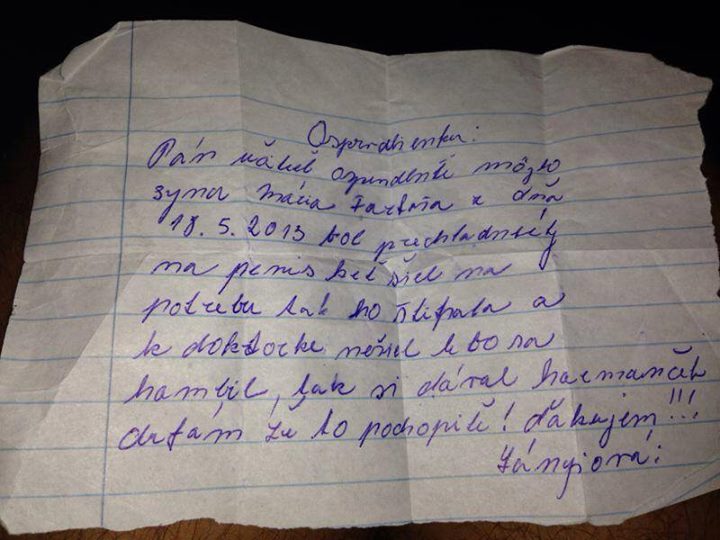 Ospravdlienka:
Pán učiteľ ospravdenťe môjho
syna Mária z dňa
18.5.2013 bol prechladnutý
na penis keť šiel na
potrebu tak ho štípalo a
k doktorke nešiel lebo sa
hambil, tak si dával harmanček
dufám že to pochopíťe! ďakujem!!!